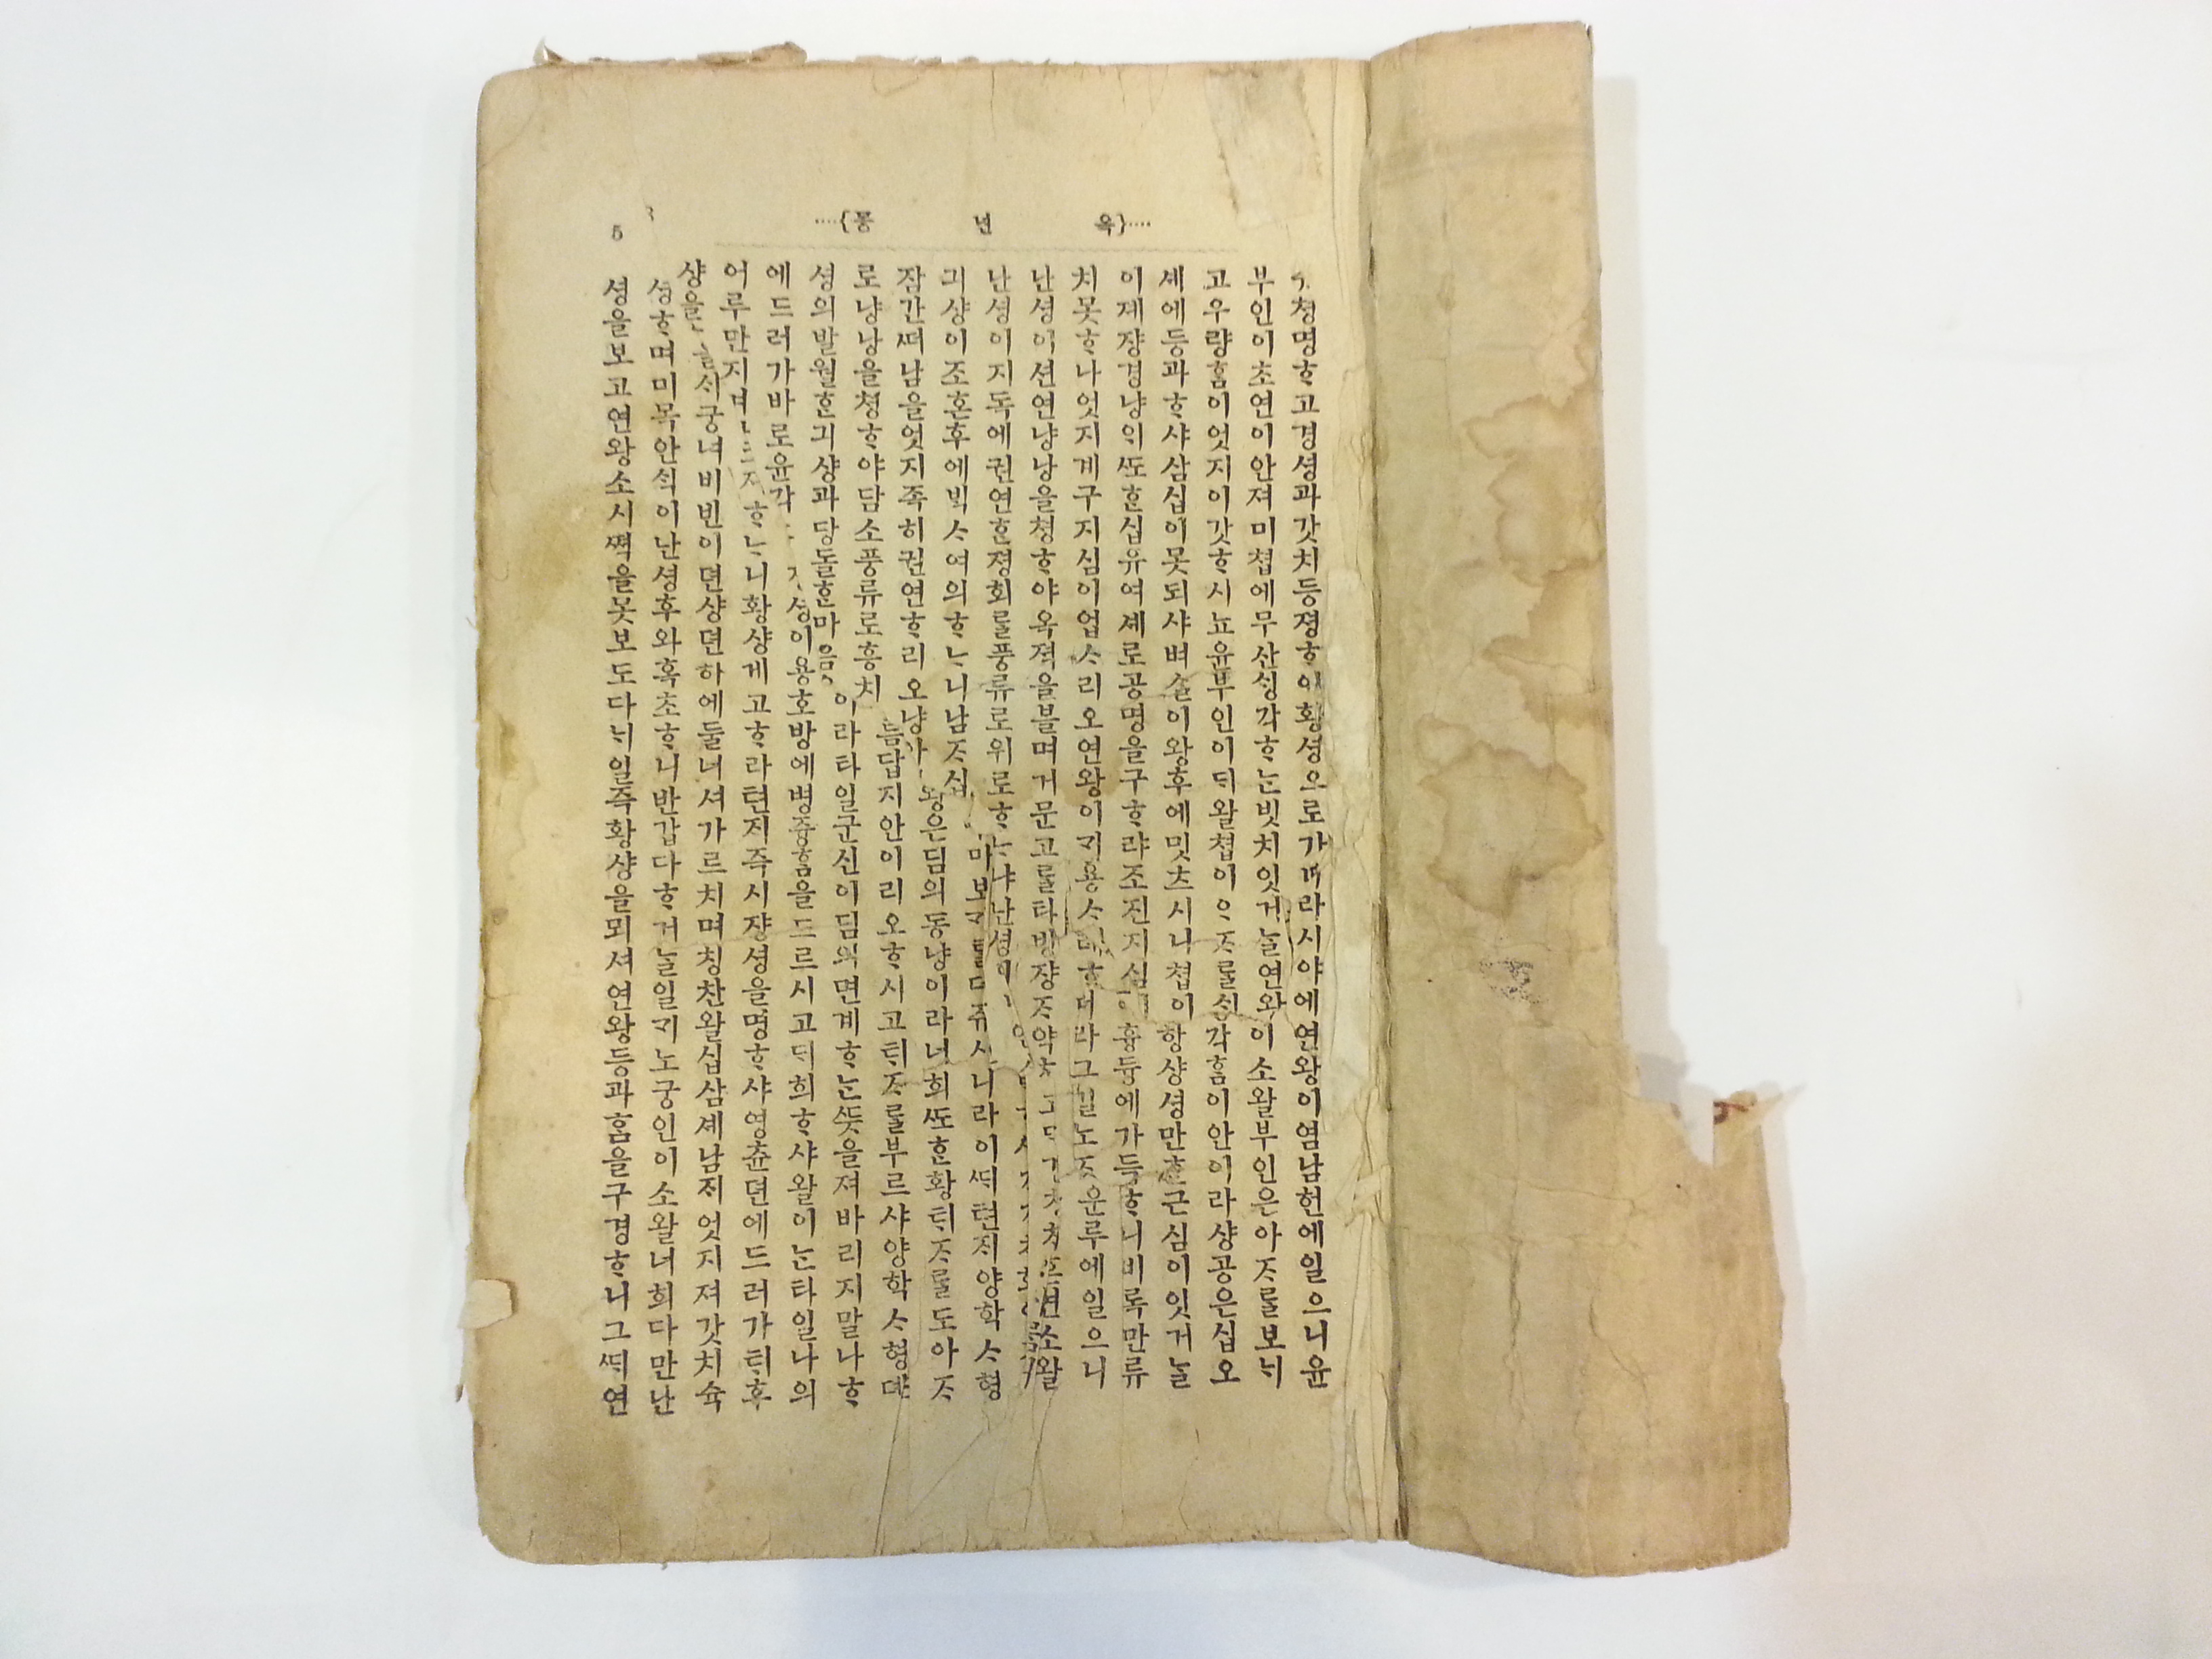 옥년몽
5
쳥명ᄒᆞ고경셩과갓치등졍ᄒᆞ야황셩으로가더라시야에연왕이염남헌에일으니윤
부인이초연이안져미쳡에무산ᄉᆡᆼ각ᄒᆞᄂᆞᆫ빗치잇거ᄂᆞᆯ연왕이소왈부인은아ᄌᆞ를보ᄂᆡ
고우량ᄒᆞᆷ이엇지이갓ᄒᆞ시뇨윤부인이ᄃᆡ왈쳡이ᄋᆞᄌᆞ를ᄉᆡᆼ각ᄒᆞᆷ이안이라샹공은십오
셰에등과ᄒᆞ샤삼십이못되샤벼슬이왕후에밋츠시니쳡이항샹셩만ᄒᆞᆫ근심이잇거ᄂᆞᆯ
이졔쟝경냥의ᄯᅩᄒᆞᆫ십유여셰로공명을구ᄒᆞ랴조진지심이흉듕에가득ᄒᆞ니비록만류
치못ᄒᆞ나엇지계구지심이업ᄉᆞ리오연왕이ᄀᆡ용ᄉᆞᄒᆞ더라그길노ᄌᆞ운루에일으니
난셩이션연냥낭을쳥ᄒᆞ야옥젹을불며거문고를타방쟝ᄌᆞ약소왈
난셩이지독에권연ᄒᆞᆫ졍회를풍류로위로ᄒᆞᄂᆞ냐난셩이
긔샹이조혼후에ᄇᆡᆨᄉᆞ여의ᄒᆞᄂᆞ니남ᄌᆞ십마보니라이ᄯᆡ텬ᄌᆡ양학ᄉᆞ형
잠간ᄯᅥ남을엇지족히권연ᄒᆞ리오냥왕은딤의동냥이라너희ᄯᅩᄒᆞᆫ황ᄐᆡᄌᆞ를도아ᄌᆞ
로냥낭을쳥ᄒᆞ야담소풍류로흥치름답지안이리오ᄒᆞ시고ᄐᆡᄌᆞ를부르샤양학ᄉᆞ형뎨
셩의발월ᄒᆞᆫ긔샹과당돌ᄒᆞᆫ마음이라타일군신이딤의면계ᄒᆞᄂᆞᆫᄯᅳᆺ을져바리지말나ᄒᆞ
에드러가바로윤각셩이용호방에병즁ᄒᆞᆷ을드르시고ᄃᆡ희ᄒᆞ샤왈이ᄂᆞᆫ타일나의
어루만지며ᄒᆞᄂᆞ니황샹게고ᄒᆞ라텬ᄌᆡ즉시쟝셩을명ᄒᆞ샤영츈뎐에드러가ᄐᆡ후
샹을ᄉᆡ궁녀비빈이뎐샹뎐하에둘너셔가르치며칭찬왈십삼셰남ᄌᆡ엇지져갓치슉
셩ᄒᆞ며미목안ᄉᆡᆨ이난셩후와혹초ᄒᆞ니반갑다ᄒᆞ거ᄂᆞᆯ일ᄀᆡ노궁인이소왈너희다만난
셩을보고연왕소시ᄶᅥᆨ을못보도다ᄂᆡ일즉황샹을뫼셔연왕등과ᄒᆞᆷ을구경ᄒᆞ니그ᄯᆡ연